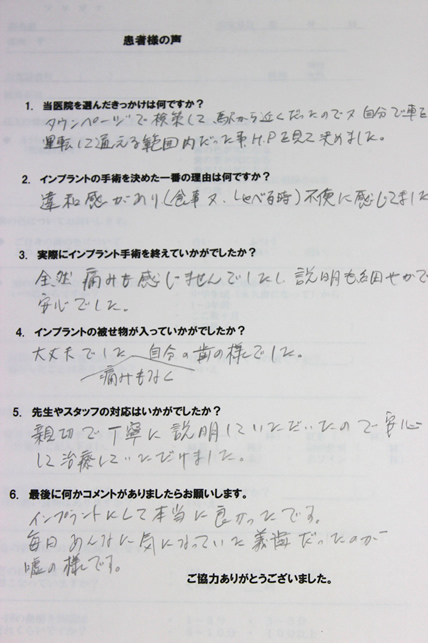 患者様の声
1. 当医院を選んだきっかけは何ですか？
タウンページで検索して駅から近くだったので又自分で車を
運転して通える範囲内だった事、H.Pを見て決めました。
2. インプラントの手術を決めた一番の理由は何ですか？
違和感があり(食事又、しゃべる時)不便に感じてました
3. 実際にインプラント手術を終えていかがでしたか？
全然痛みも感じませんでしたし説明も細やかで
安心でした。
4. インプラントの被せ物が入っていかがでしたか？
大丈夫でした 自分の歯の様でした。
痛みもなく
5. 先生やスタッフの対応はいかがでしたか？
親切で丁寧に説明していただいたので安心
して治療していただけました。
6. 最後に何かコメントがありましたらお願いします。
インプラントにして本当に良かったです。
毎日あんなに気になっていた義歯だったのが
嘘の様です。
ご協力ありがとうございました。